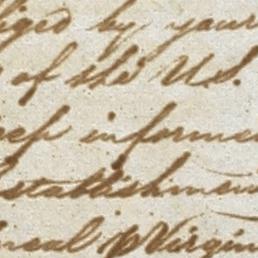 liged by your
of the U.S.
eep informe
establishmen
neal Virgin